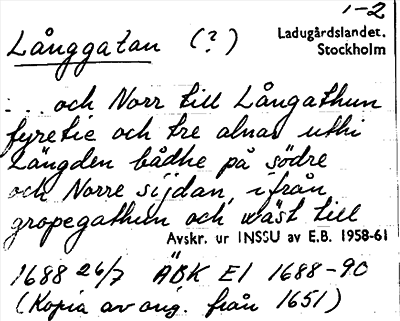 1-2
Långgatan (?)
Ladugårdslandet.
Stockholm
... och Norr till Långathun
fyretie och tre alnar uthi
Längden bådhe på södre
och Norre sijdan, ifrån
gropegathun och wäst till
Avskr. ur INSSU av E.B. 1958-61
1688 26/7 ÄBK E1 1688-90
(Kopia av ong. från 1651)